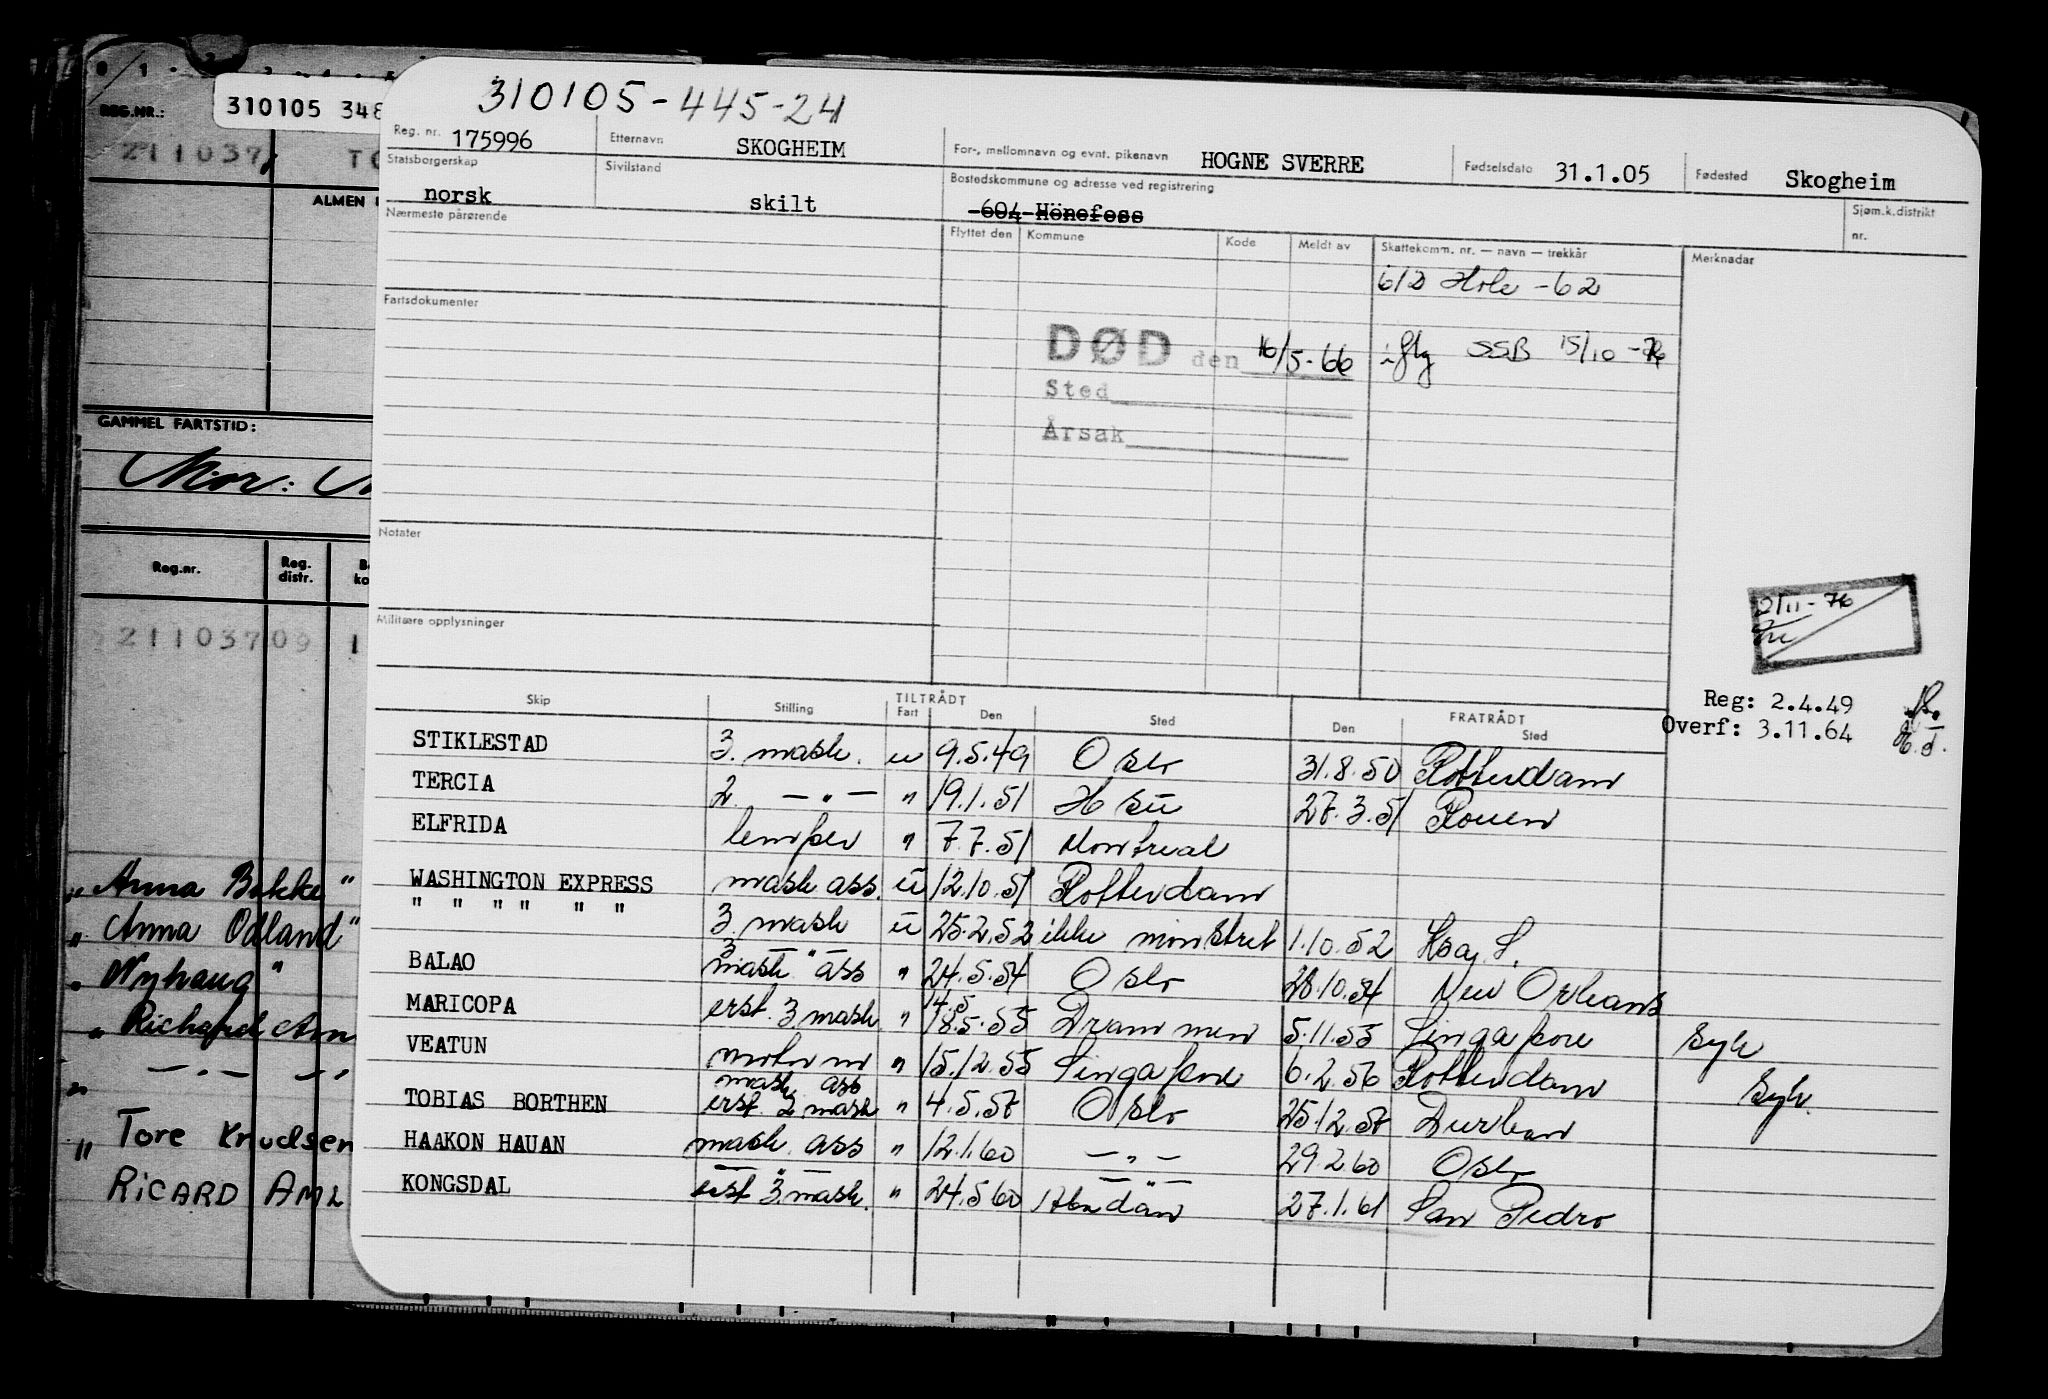 310105-445-24
310105 348
REG.NR.:
211037
ALMEN
GAMMEL FARTSTID:
Mor:
Reg.nr. Reg. distr.
21103709 1
" Anna Bakke "
" Anna Odland "
" Nyhaug "
" Richard Am
— " —
" Tore Knudsen
RICARD AML
Reg. nr. 175996 Etternavn SKOGHEIM For-, mellomnavn og evnt. pikenavn HOGNE SVERRE Fødselsdato 31.1.05 Fødested Skogheim
Statsborgerskap norsk Sivilstand skilt Bostedskommune og adresse ved registrering 604 Hönefoss Sjøm.k.distrikt nr.
Nærmeste pårørende Flyttet den Kommune Kode Meldt av Skattekomm. nr. — navn — trekkår Merknader
612 Hole -62
Fartsdokumenter
DØD den 16/5-66 iflg SSB 15/10-76
Sted
Årsak
Notater
Militære opplysninger
2/11-76
Reg: 2.4.49
Overf: 3.11.64
Skip Stilling TILTRÅDT Fart Den Sted FRATRÅDT Den Sted
STIKLESTAD 3. mask. u 9.5.49 Oslo 31.8.50 Rotterdam
TERCIA 2 — " — " 19.1.51 H su 27.3.51 Rouen
ELFRIDA lemper " 7.7.51 Montreal
WASHINGTON EXPRESS mask ass. u 12.10.51 Rotterdam
" " " " " " 3. mask u 25.2.52 ikke mønstret 1.10.52
3 — " —
BALAO mask ass " 24.5.54 Oslo 28.10.54 New Orleans
14.5
MARICOPA erst. 3 mask. " 18.5.55 Drammen 5.11.55 Singapore Syk
VEATUN motorm " 15.12.55 Singapore 6.2.56 Rotterdam Syk.
mask. ass
TOBIAS BORTHEN erst 2 mask " 4.5.57 Oslo 25.12.57 Durban
HAAKON HAUAN mask. ass " 12.1.60 — " — 29.2.60 Oslo
— " — — " —
KONGSDAL erst 3. mask. " 24.5.60 Abadan 27.1.61 San Pedro